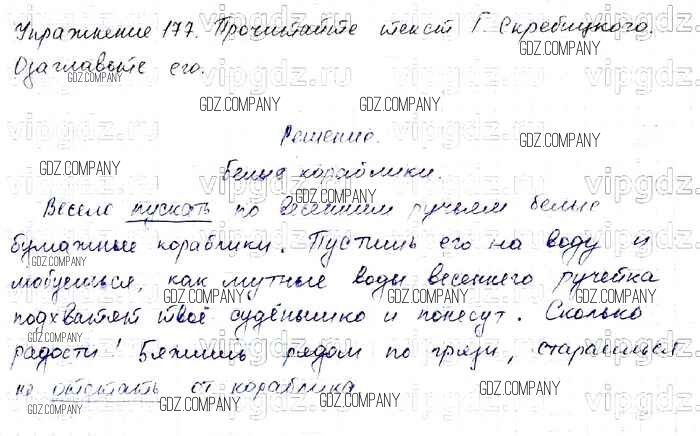 Упражнение 177. Прочитайте текст Г. Скребицкого.
Озаглавьте его.
Решение.
Белые кораблики.
Весело пускать по весенним ручьям белые
бумажные кораблики. Пустишь его на воду и
любуешься, как мутные воды весеннего ручейка
подхватят твоё судёнышко и понесут. Сколько
радости! Бежишь рядом по грязи, стараешься
не отстать от кораблика